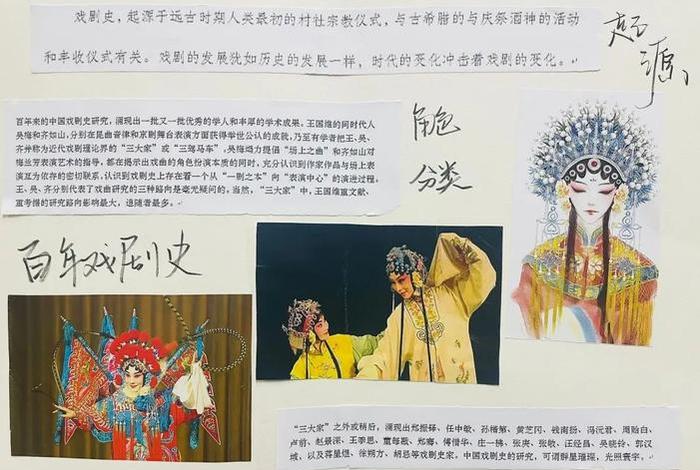 戏剧史，起源于远古时期人类最初的村社宗教仪式，与古希腊的与庆祭酒神的活动
和丰收仪式有关。戏剧的发展犹如历史的发展一样，时代的变化冲击着戏剧的变化。
起源
百年来的中国戏剧史研究，涌现出一批又一批优秀的学人和丰厚的学术成果。王国维的同时代人
吴梅和齐如山，分别在昆曲音律和京剧舞台表演方面获得举世公认的成就，乃至有学者把王、吴、
齐并称为近代戏剧理论界的“三大家”或“三驾马车”。吴梅竭力提倡“场上之曲”和齐如山对
梅兰芳表演艺术的指导，都在揭示出戏曲的角色扮演本质的同时，充分认识到作家作品与场上表
演互为依存的密切联系，认识到戏剧史上存在着一个从“一剧之本”向“表演中心”的演进过程。
王、吴、齐分别代表了戏曲研究的三种路向是毫无疑问的。当然，“三大家”中，王国维重文献、
重考据的研究路向影响最大，追随者最多。
角色
分类
百年戏剧史
“三大家”之外或稍后，涌现出郑振铎、任中敏、孙楷第、黄芝冈、钱南扬、冯沅君、周贻白、
卢前、赵景深、王季思、董每戡、郑骞、傅惜华、庄一拂、张庚、张敬、汪经昌、吴晓铃、郭汉
城、以及蒋星煜、徐朔方、胡忌等戏剧史家，中国戏剧史的研究，可谓群星璀璨，光照寰宇。